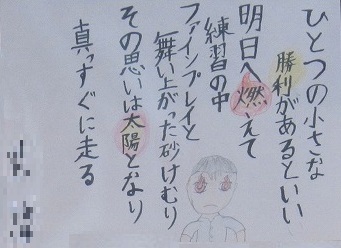 ひとつの小さな
勝利があるといい
明日へ燃えて
練習の中
ファインプレイと
舞い上がった砂けむり
その思いは太陽となり
真っすぐに走る